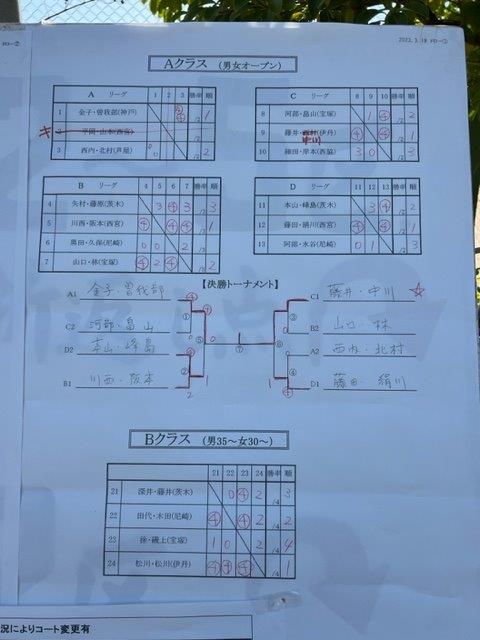 2023.3.18 ドロー①
ドロー②
Aクラス (男女オープン)
A リーグ 1 2 3 勝率 順
1 金子・曽我部(神戸) ④ /2 1
キ 2 平岡・山本(西宮)
3 西内・北村(芦屋) 0 /2 2
C リーグ 8 9 10 勝率 順
8 阿部・畠山(宝塚) 1 ④ /2 2
9 藤井・中川(伊丹) ④ ④ /2 1
10 細田・岸本(西脇) 3 0 /2 3
B リーグ 4 5 6 7 勝率 順
4 矢村・藤原(茨木) 3 ④ 3 /3 3
5 川西・阪本(西宮) ④ ④ ④ /3 1
6 奥田・久保(尼崎) 0 0 2 /3
7 山口・林(宝塚) ④ 2 ④ /3 2
D リーグ 11 12 13 勝率 順
11 本山・峰島(茨木) 3 ④ /2 2
12 藤田・絹川(西宮) ④ ④ /2 1
13 阿部・水谷(尼崎) 0 1 /2 3
【決勝トーナメント】
A1 金子・曽我部
C2 阿部・畠山
D2 本山・峰島
B1 川西・阪本
C1 藤井・中川 ☆
B2 山口・林
A2 西内・北村
D1 藤田・絹川
Bクラス (男35~女30~)
21 22 23 24 勝率 順
21 深井・藤井(茨木) 0 ④ 2 /4 3
22 田代・木田(尼崎) ④ ④ 2 /4 2
23 徐・磯上(宝塚) 1 0 2 /4 4
24 松川・松川(伊丹) ④ ④ ④ /4 1
況によりコート変更有